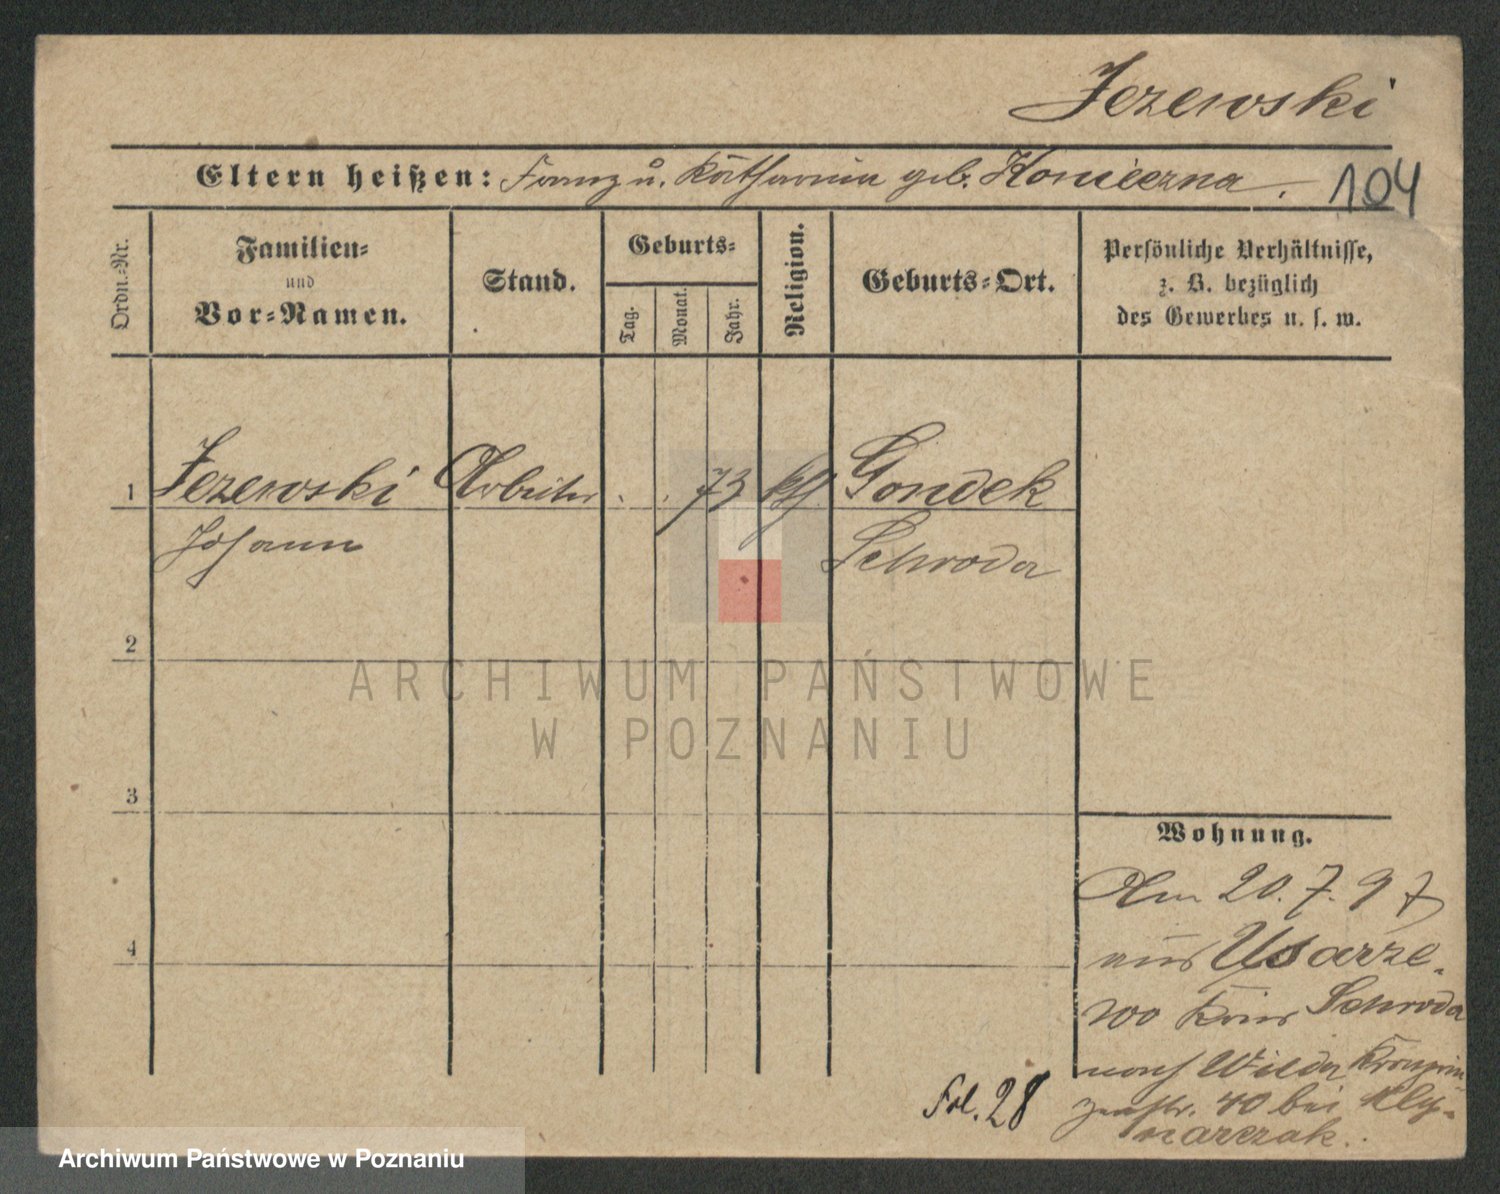 Jezewski
Eltern heißen: Franz u. Katharina geb. Konieczna. 104
Ordn.-Nr.
Familien-
und
Vor-Namen.
Stand.
Geburts-
Tag.
Monat.
Jahr.
Religion.
Geburts-Ort.
Persönliche Verhältnisse,
z. B. bezüglich
des Gewerbes u. s. w.
1 Jezewski Arbeiter . . 73 kth Gondek
Johann Schroda
2
3
4
Wohnung.
Am 20.7.97
aus Usarze-
wo Kreis Schroda
nach Wilda Kronprin-
zenstr. 40 bei Kly-
narczak.
Fol. 28
ARCHIWUM PAŃSTWOWE
W POZNANIU
Archiwum Państwowe w Poznaniu